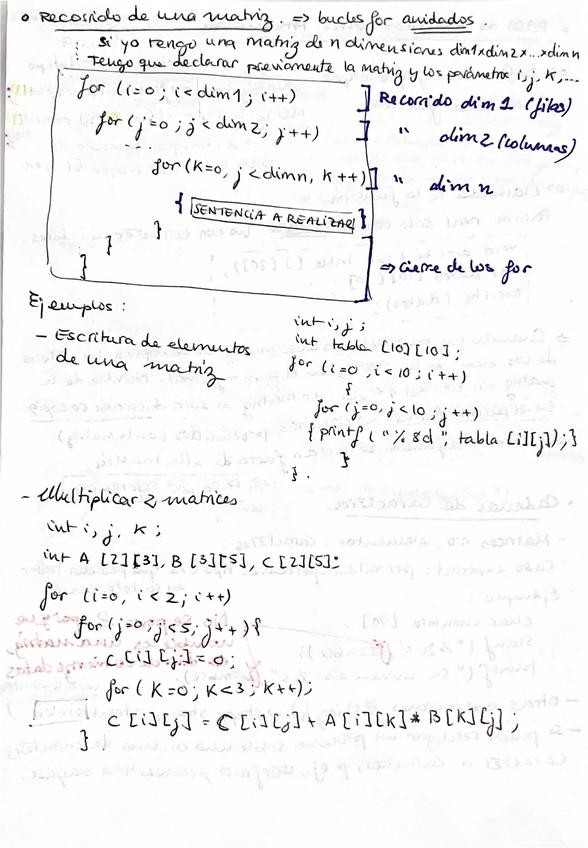 o Recorrido de una matriz. => bucles for anidados.
Si yo tengo una matriz de n dimensiones dim1xdim2x...xdimn
Tengo que declarar previamente la matriz y los parámetros i, j, K,...
for (i=0; i<dim1; i++) ] Recorrido dim1 (filas)
for (j=0; j<dim2; j++) ] " dim2 (columnas)
...
for (K=0, j<dimn, K++) ] " dim n
{ SENTENCIA A REALIZAR }
}
}
} => cierre de los for
Ejemplos:
- Escritura de elementos
de una matriz
int i, j;
int tabla [10][10];
for (i=0, i<10; i++)
{
for (j=0, j<10; j++)
{ printf ("% 8d", tabla [i][j]); }
}
} .
- Multiplicar 2 matrices
int i, j, K;
int A [2][3], B [3][5], C [2][5];
for (i=0, i<2; i++)
for (j=0; j<5; j++) {
C[i][j] = 0;
for (K=0; K<3; K++);
C[i][j] = C[i][j] + A[i][K] * B[K][j];
} .